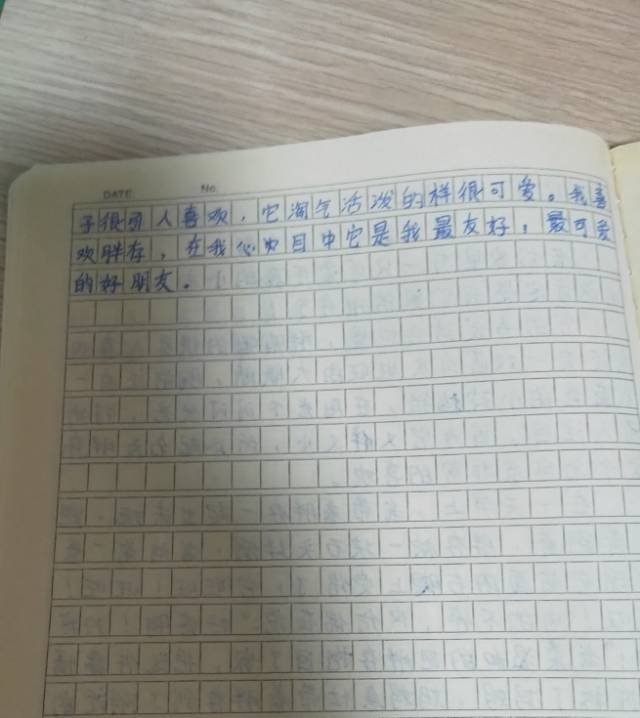 DATE No.
子很引人喜欢，它淘气活泼的样很可爱。我喜
欢胖存，在我心中目中它是我最友好，最可爱
的好朋友。